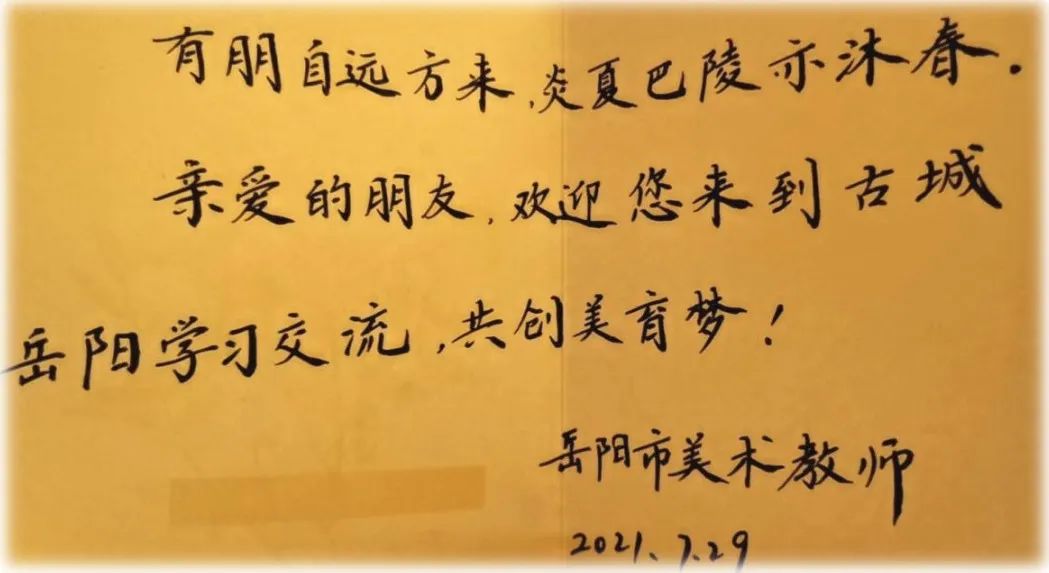 有朋自远方来,炎夏巴陵亦沐春.
亲爱的朋友,欢迎您来到古城
岳阳学习交流,共创美育梦!
岳阳市美术教师
2021.7.29